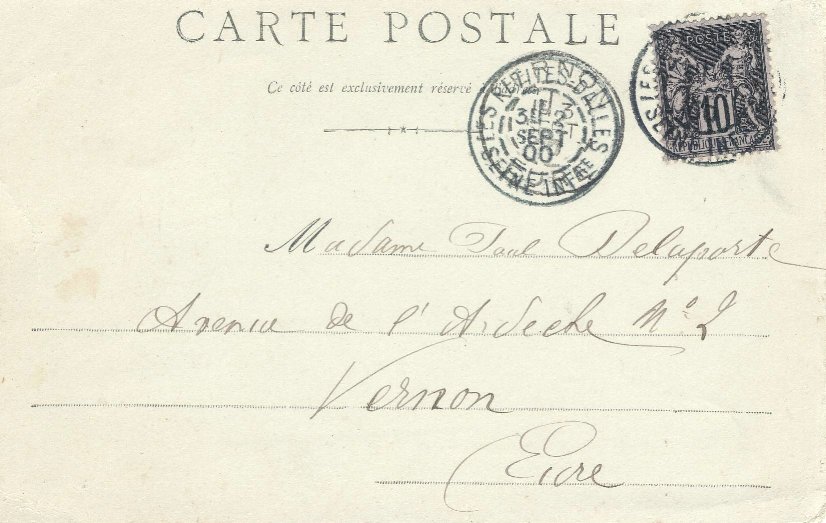 CARTE POSTALE
Ce côté est exclusivement réservé
LES PETITES-DALLES
SEINE INFRE
SEPT
00
POSTES
10
REPUBLIQUE FRANÇAISE
Madame Paul Delaporte
Avenue de l'Ardèche No 2
Vernon
Eure